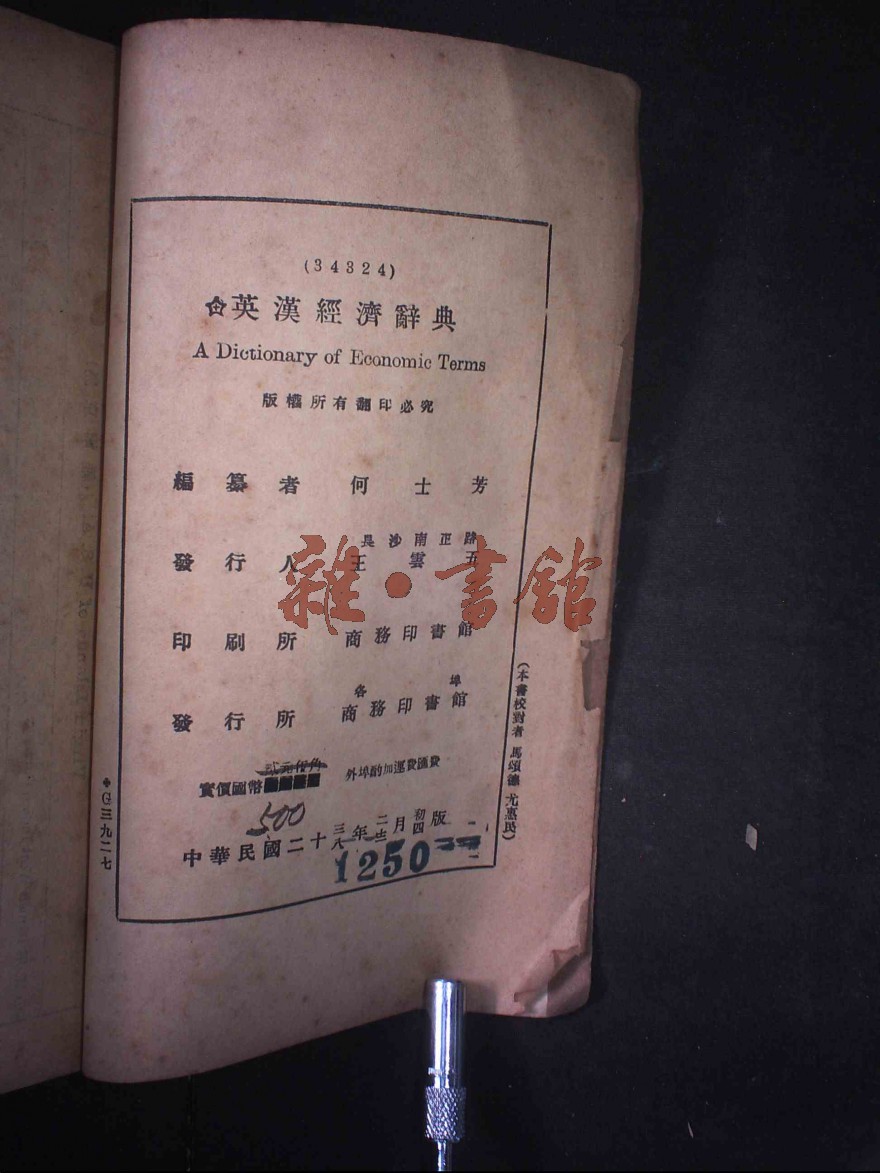 (34324)
英漢經濟辭典
A Dictionary of Economic Terms
版權所有翻印必究
編纂者 何士芳
長沙南正路
發行人 王雲五
印刷所 商務印書館
各埠
發行所 商務印書館
實價國幣 外埠酌加運費匯費
500
中華民國二十三年二月初版
八 四版
1250
(本書校對者 馬頌德 尤惠民)
G三九二七
雜·書館